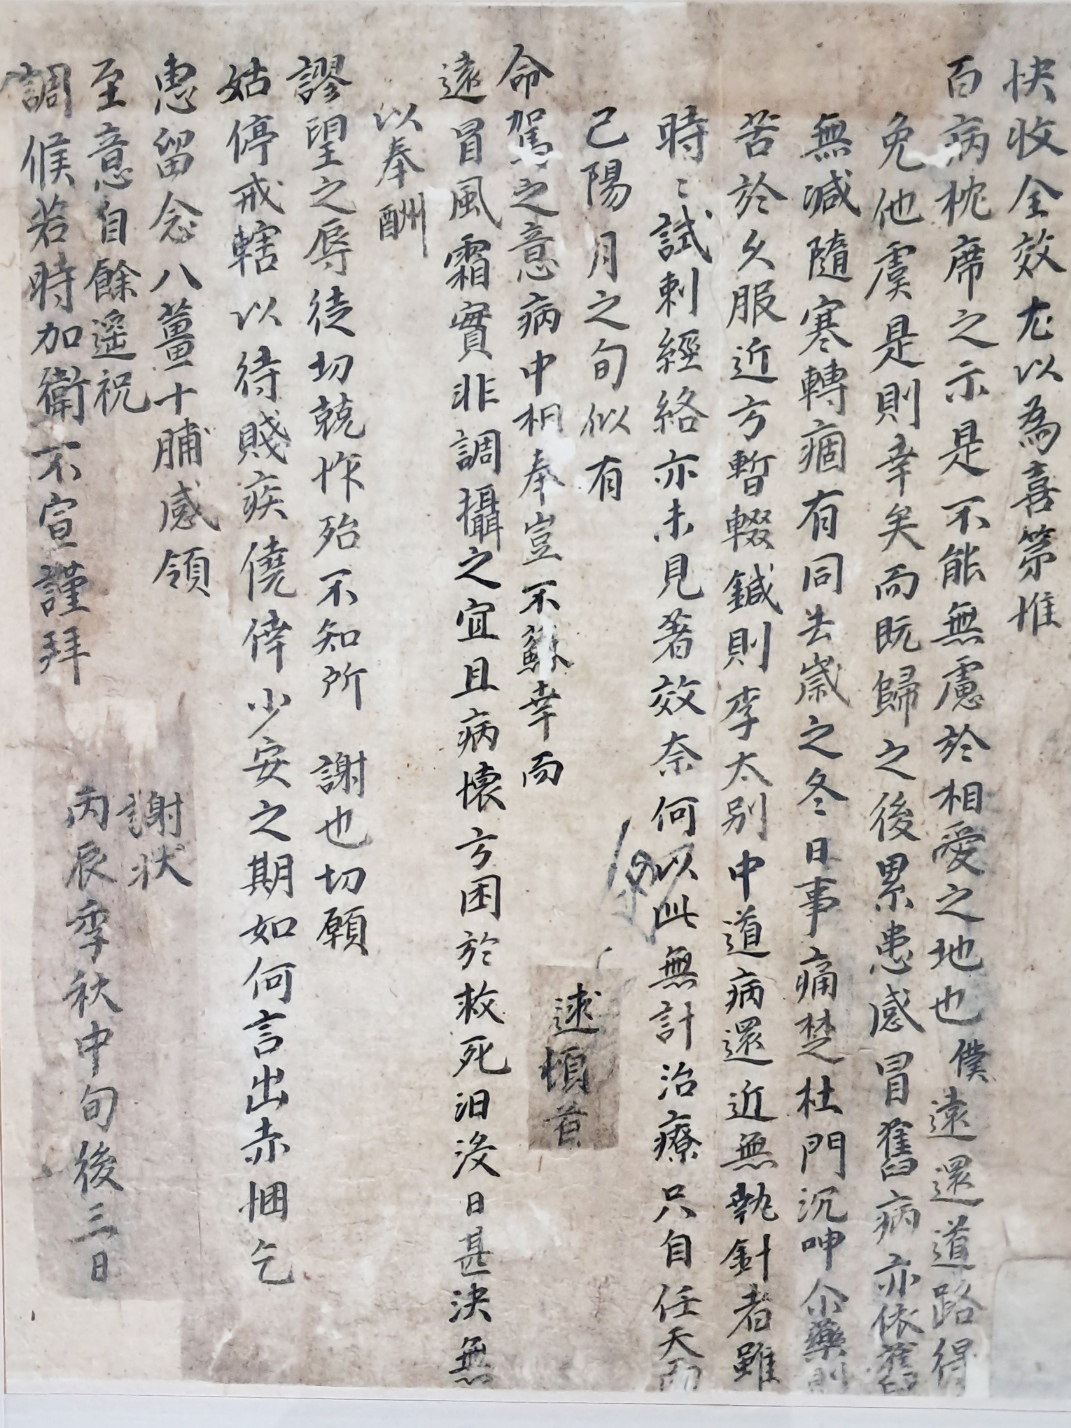 快收全效尤以為喜第惟
百病枕席之示是不能無慮於相愛之地也僕遠還道路得
免他虞是則幸矣而既歸之後累患感冒舊病亦依舊
無減隨寒轉痼有同去歲之冬日事痛楚杜門沉呻尒藥則
苦於久服近方暫輟鍼則李太別中道病還近無執針者雖
時〻試刺經絡亦未見著效奈何以此無計治療只自任天而
已陽月之旬似有
命駕之意病中相奉豈不蘇幸而
遠冒風霜實非調攝之宜且病懷方困於救死汨沒日甚決無
以奉酬
謬望之辱徒切兢怍殆不知所 謝也切願
姑停戒轄以待賤疾僥倖少安之期如何言出赤悃乞
惠留念八薑十脯感領
至意自餘遙祝
調候若時加衛不宣謹拜
謝狀
丙辰季秋中旬後三日
逑頓首